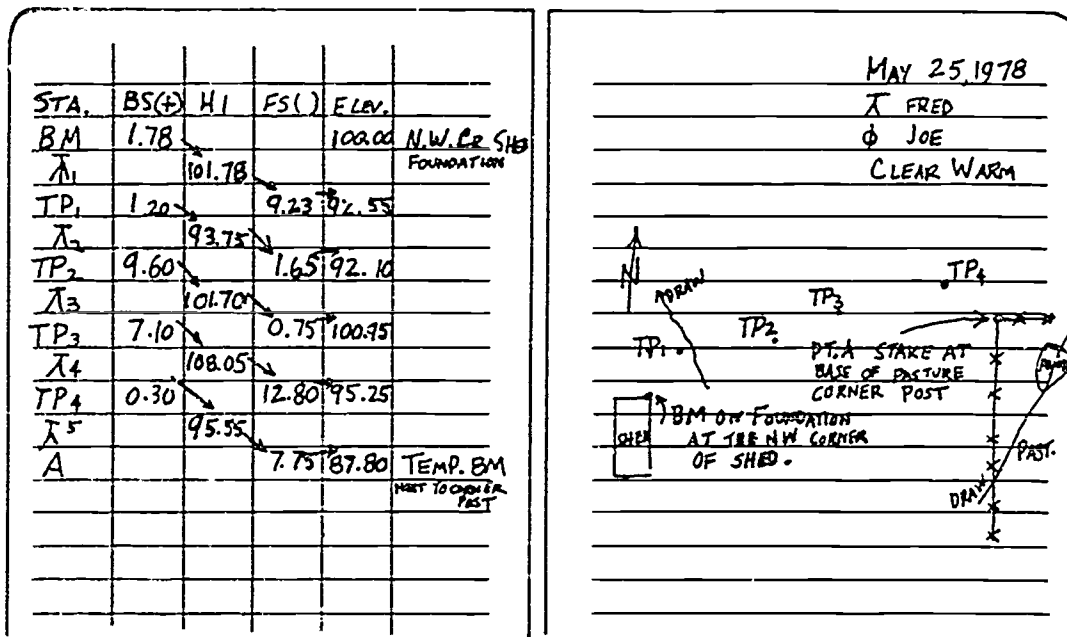 STA. BS(+) HI FS( ) ELEV.
BM 1.78 100.00 N.W. CR SHED
FOUNDATION
⊼1 101.78
TP1 1.20 9.23 92.55
⊼2 93.75
TP2 9.60 1.65 92.10
⊼3 101.70
TP3 7.10 0.75 100.95
⊼4 108.05
TP4 0.30 12.80 95.25
⊼5 95.55
A 7.75 87.80 TEMP. BM
NEXT TO CORNER
POST
MAY 25, 1978
⊼ FRED
ϕ JOE
CLEAR WARM
N
DRAW
TP1
TP2
TP3
TP4
PT. A STAKE AT
BASE OF PASTURE
CORNER POST
SHED
BM ON FOUNDATION
AT THE NW CORNER
OF SHED.
PAST.
DRAW